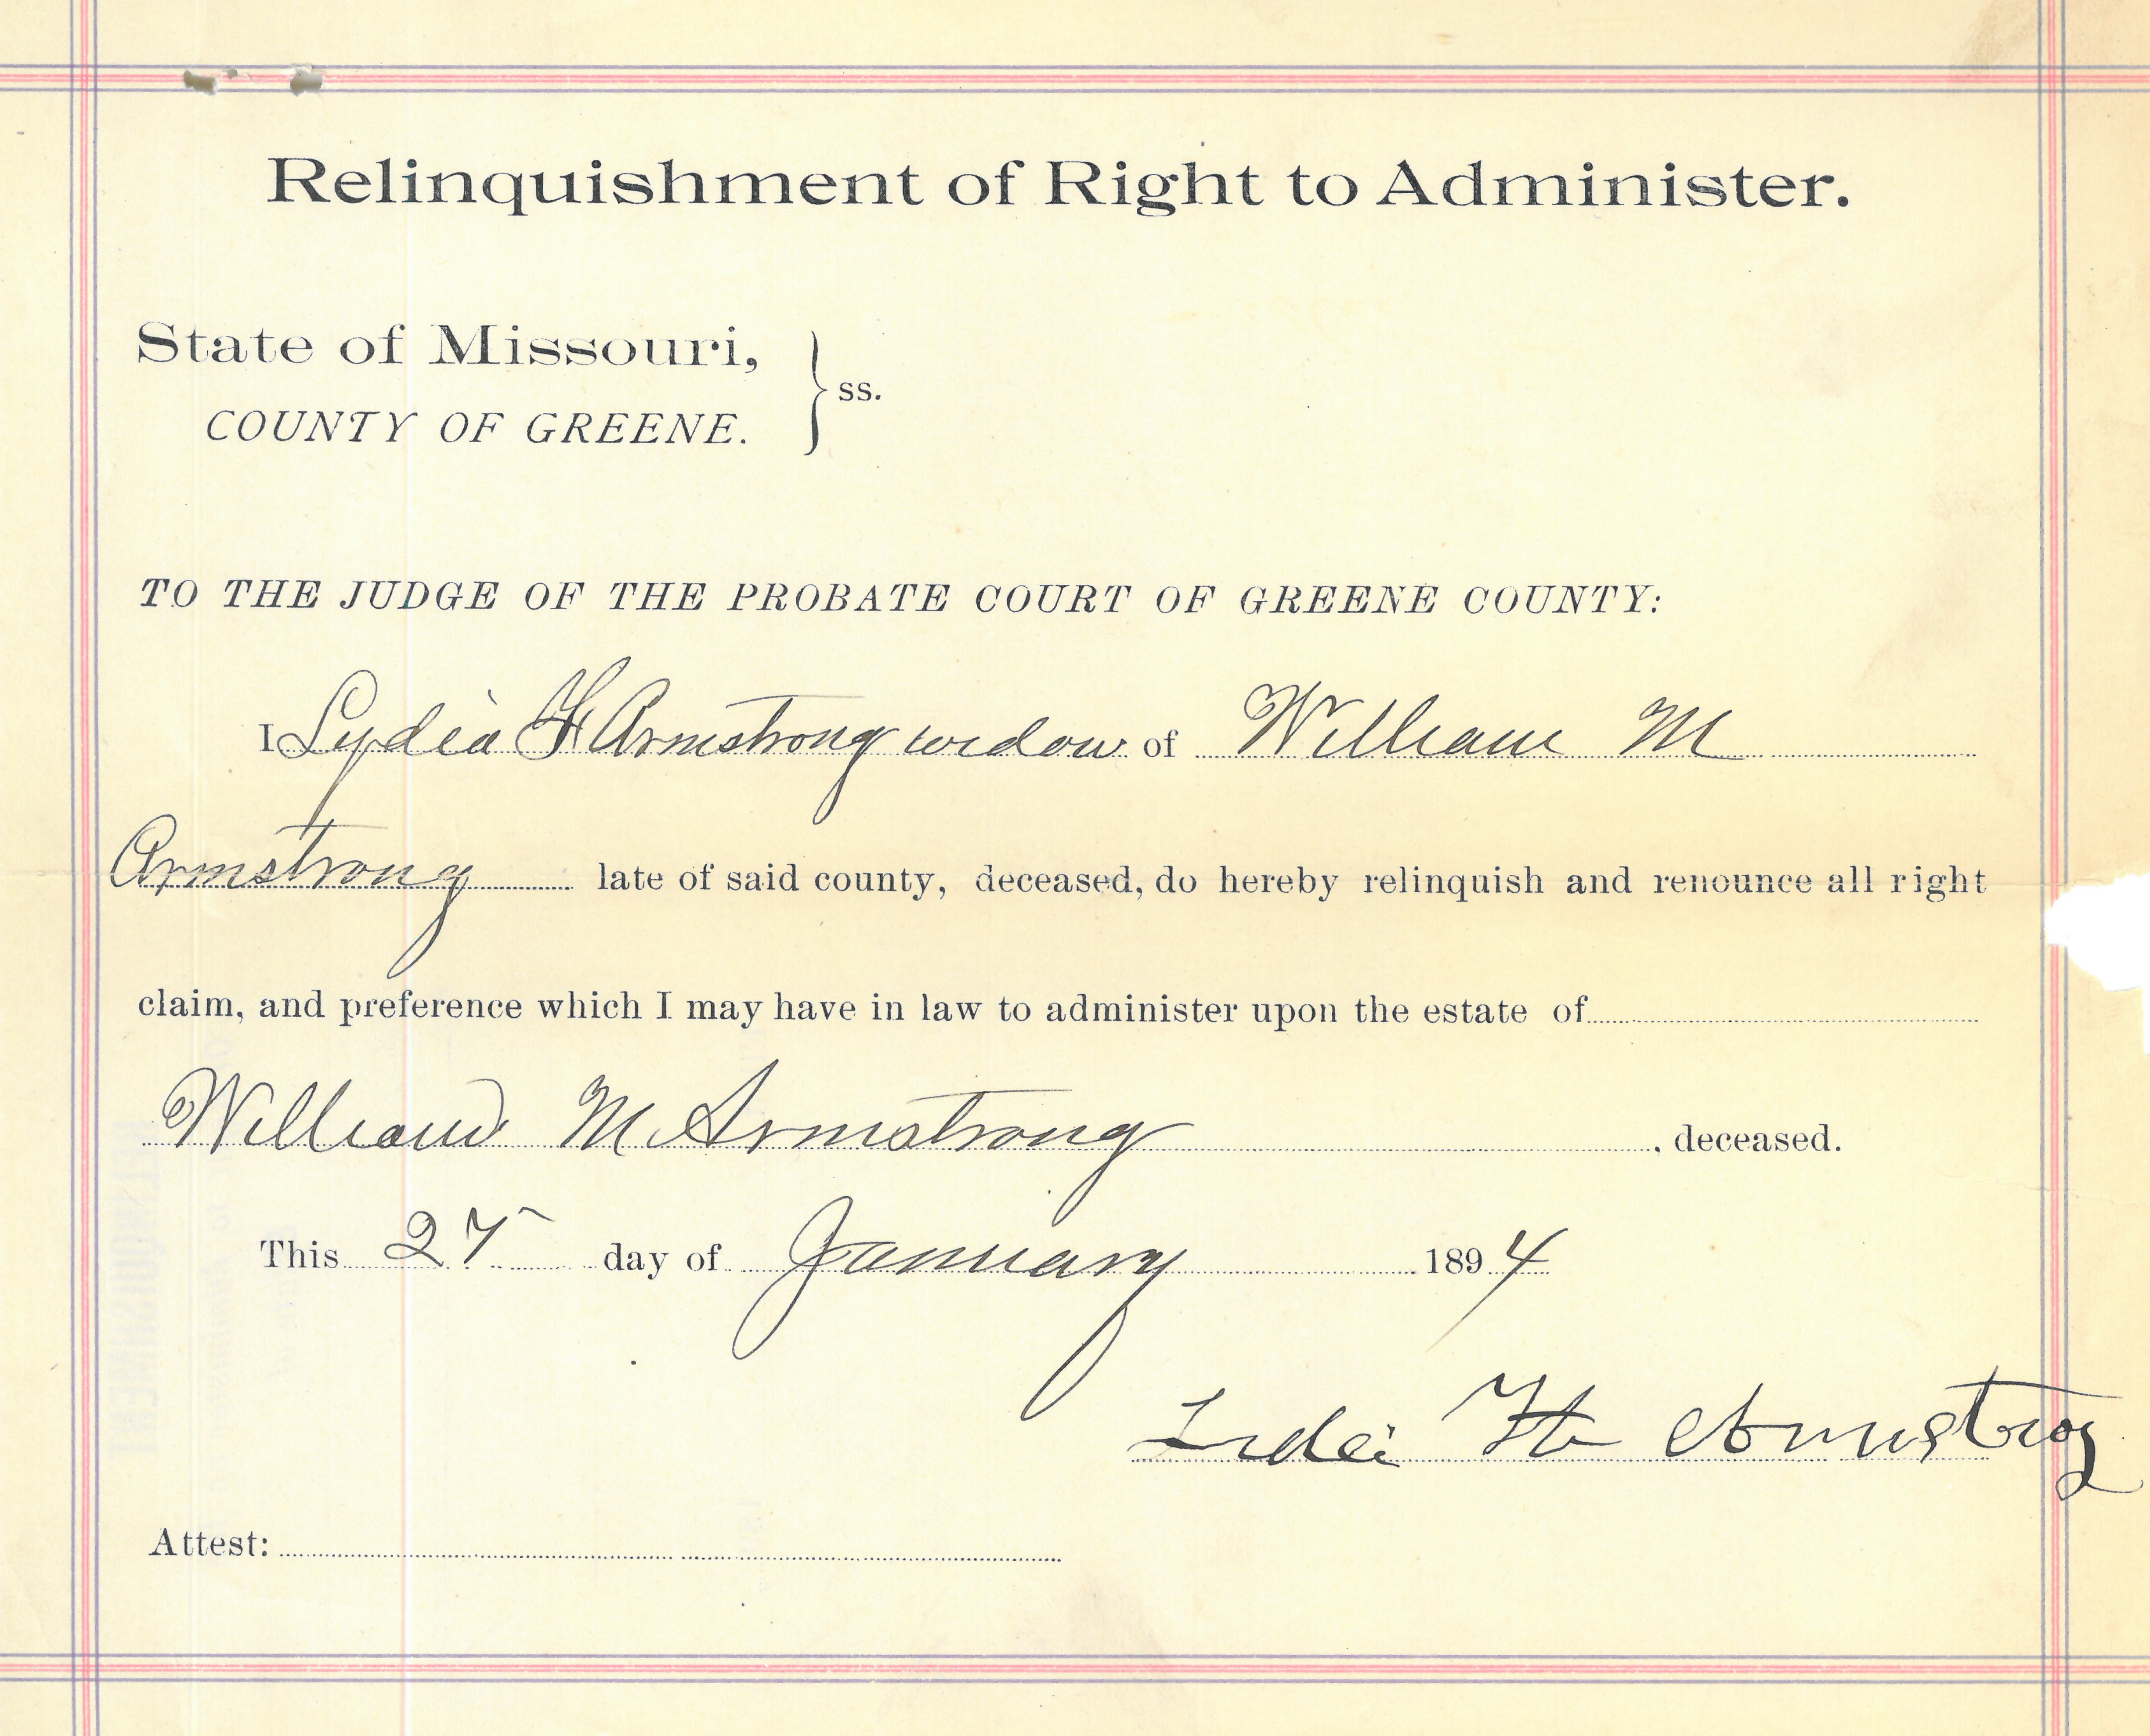 Relinquishment of Right to Administer.
State of Missouri,
COUNTY OF GREENE. } ss.
TO THE JUDGE OF THE PROBATE COURT OF GREENE COUNTY:
I Lydia H Armstrong widow of William M
Armstrong late of said county, deceased, do hereby relinquish and renounce all right
claim, and preference which I may have in law to administer upon the estate of
William M Armstrong, deceased.
This 27 day of January 1894
H Armstrog
Attest: